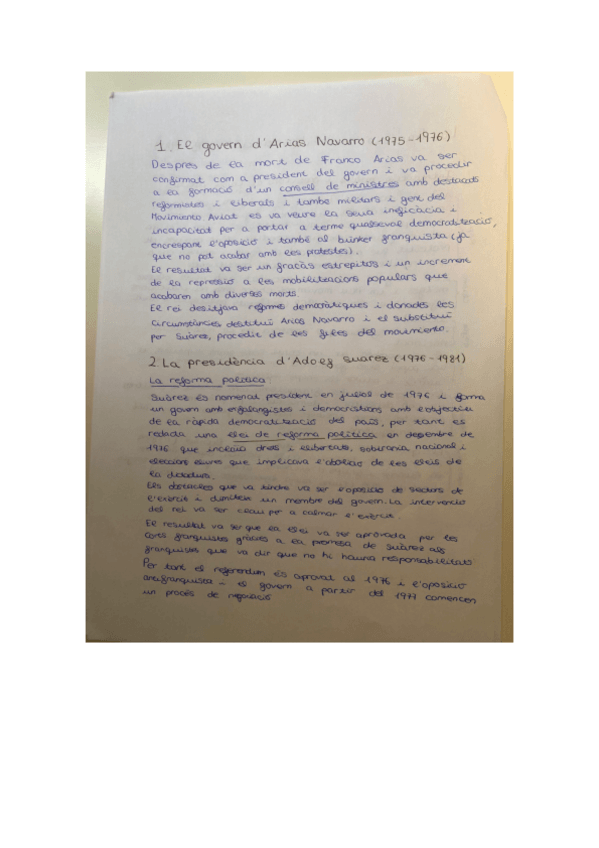 1. El govern d'Arias Navarro (1975-1976)
Despres de la mort de Franco Arias va ser
confirmat com a president del govern i va procedir
a la formació d'un consell de ministres amb destacats
reformistes i liberals i també militars i gent del
Movimento Aviat es va veure la seua ineficàcia i
incapacitat per a portar a terme qualsevol democratització,
encrespant l'oposició i també al búnker franquista (ja
que no pot acabar amb les protestes).
El resultat va ser un fracàs estrepitós i un increment
de la repressió a les mobilitzacions populars que
acabaren amb diversos morts.
El rei desitjava reformes democràtiques i donades les
circumstàncies destituí Arias Navarro i el substituí
per Suárez, procedit de les files del movimiento.
2. La presidència d'Adolf Suarez (1976-1981)
La reforma política
Suárez és nomenat president en juliol de 1976 i forma
un govern amb exfalangistes i democristians amb l'objectiu
de la ràpida democratització del país, per tant es
redada una llei de reforma política en deptembre de
1976 que incloïa drets i llibertats, sobirania nacional i
eleccions lliures que implicava l'abolició de les lleis de
la dictadura.
Els obstacles que va tindre va ser l'oposició de sectors de
l'exèrcit i dimiteix un membre del govern. La intervenció
del rei va ser clau per a calmar l'exèrcit.
El resultat va ser que la llei va ser aprovada per les
Corts franquistes gràcies a la promesa de Suárez als
franquistes que va dir que no hi hauria responsabilitats
Per tant el referendum és aprovat al 1976 i l'oposició
antifranquista - el govern a partir del 1977 comencen
un procés de negociació